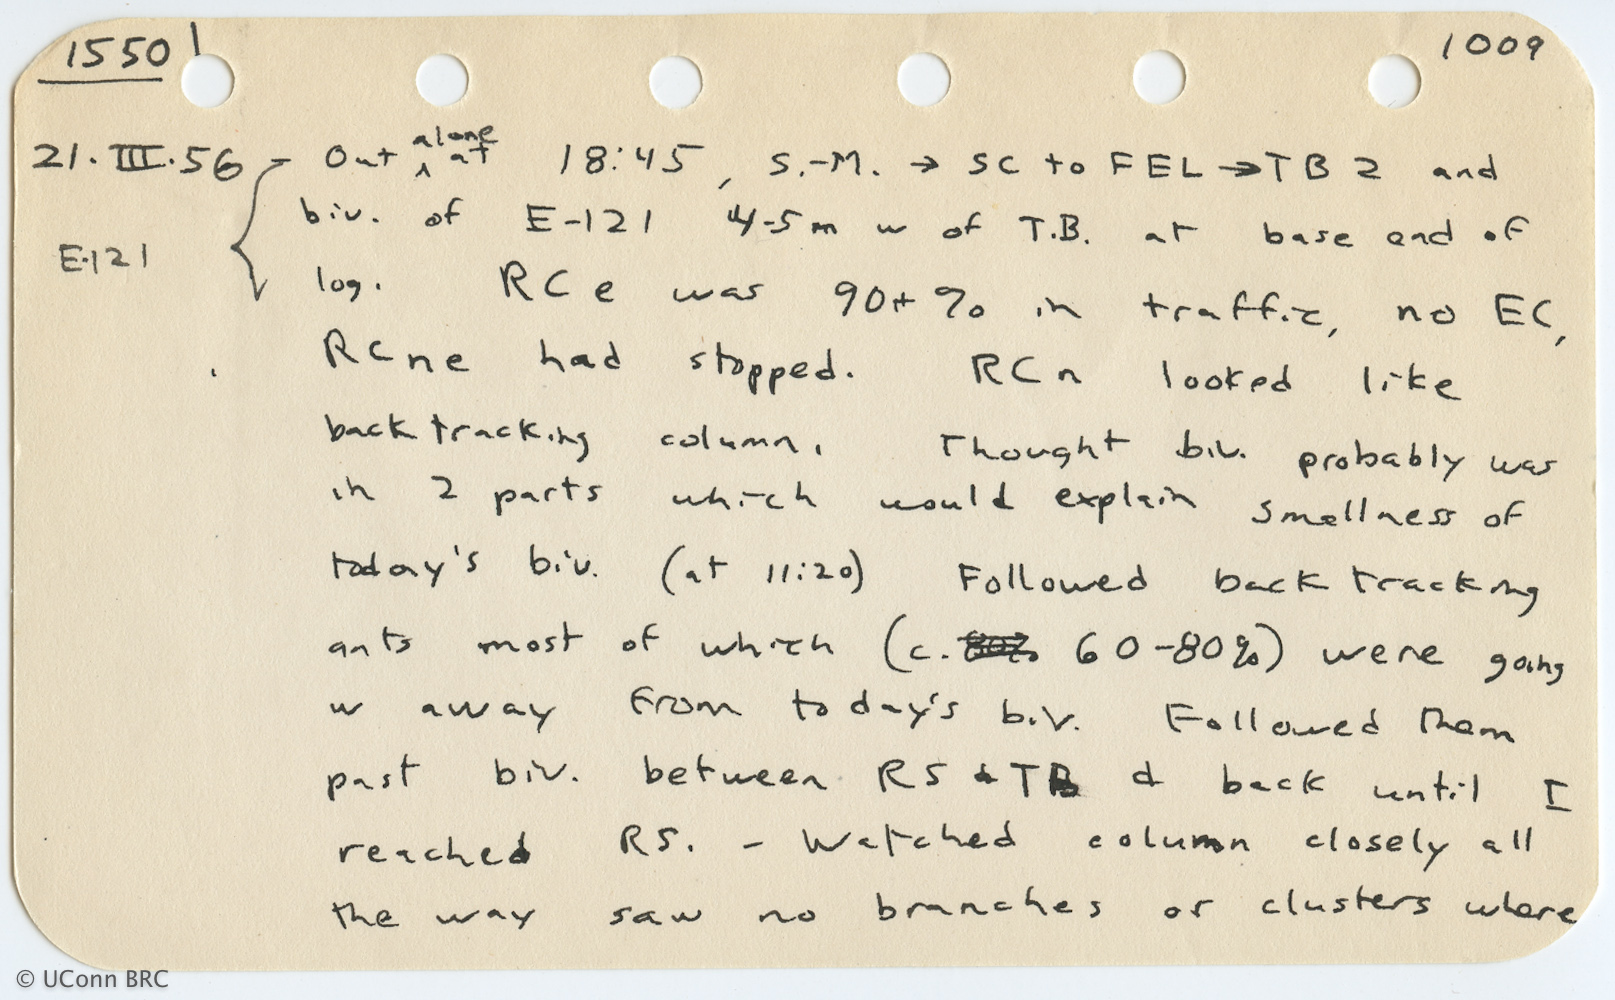 1550 1009
21.III.56 - Out alone at 18:45, S.-M. → SC to FEL → TB 2 and
biv. of E-121 4-5m w of T.B. at base end of
E-121
log. RCe was 90+% in traffic, no EC,
RCne had stopped. RCn looked like
backtracking column. Thought biv. probably was
in 2 parts which would explain smallness of
today's biv. (at 11:20) Followed backtracking
ants most of which (c. 80% 60-80%) were going
w away from today's biv. Followed them
past biv. between RS & TB & back until I
reached RS. - Watched column closely all
the way saw no branches or clusters where
© UConn BRC